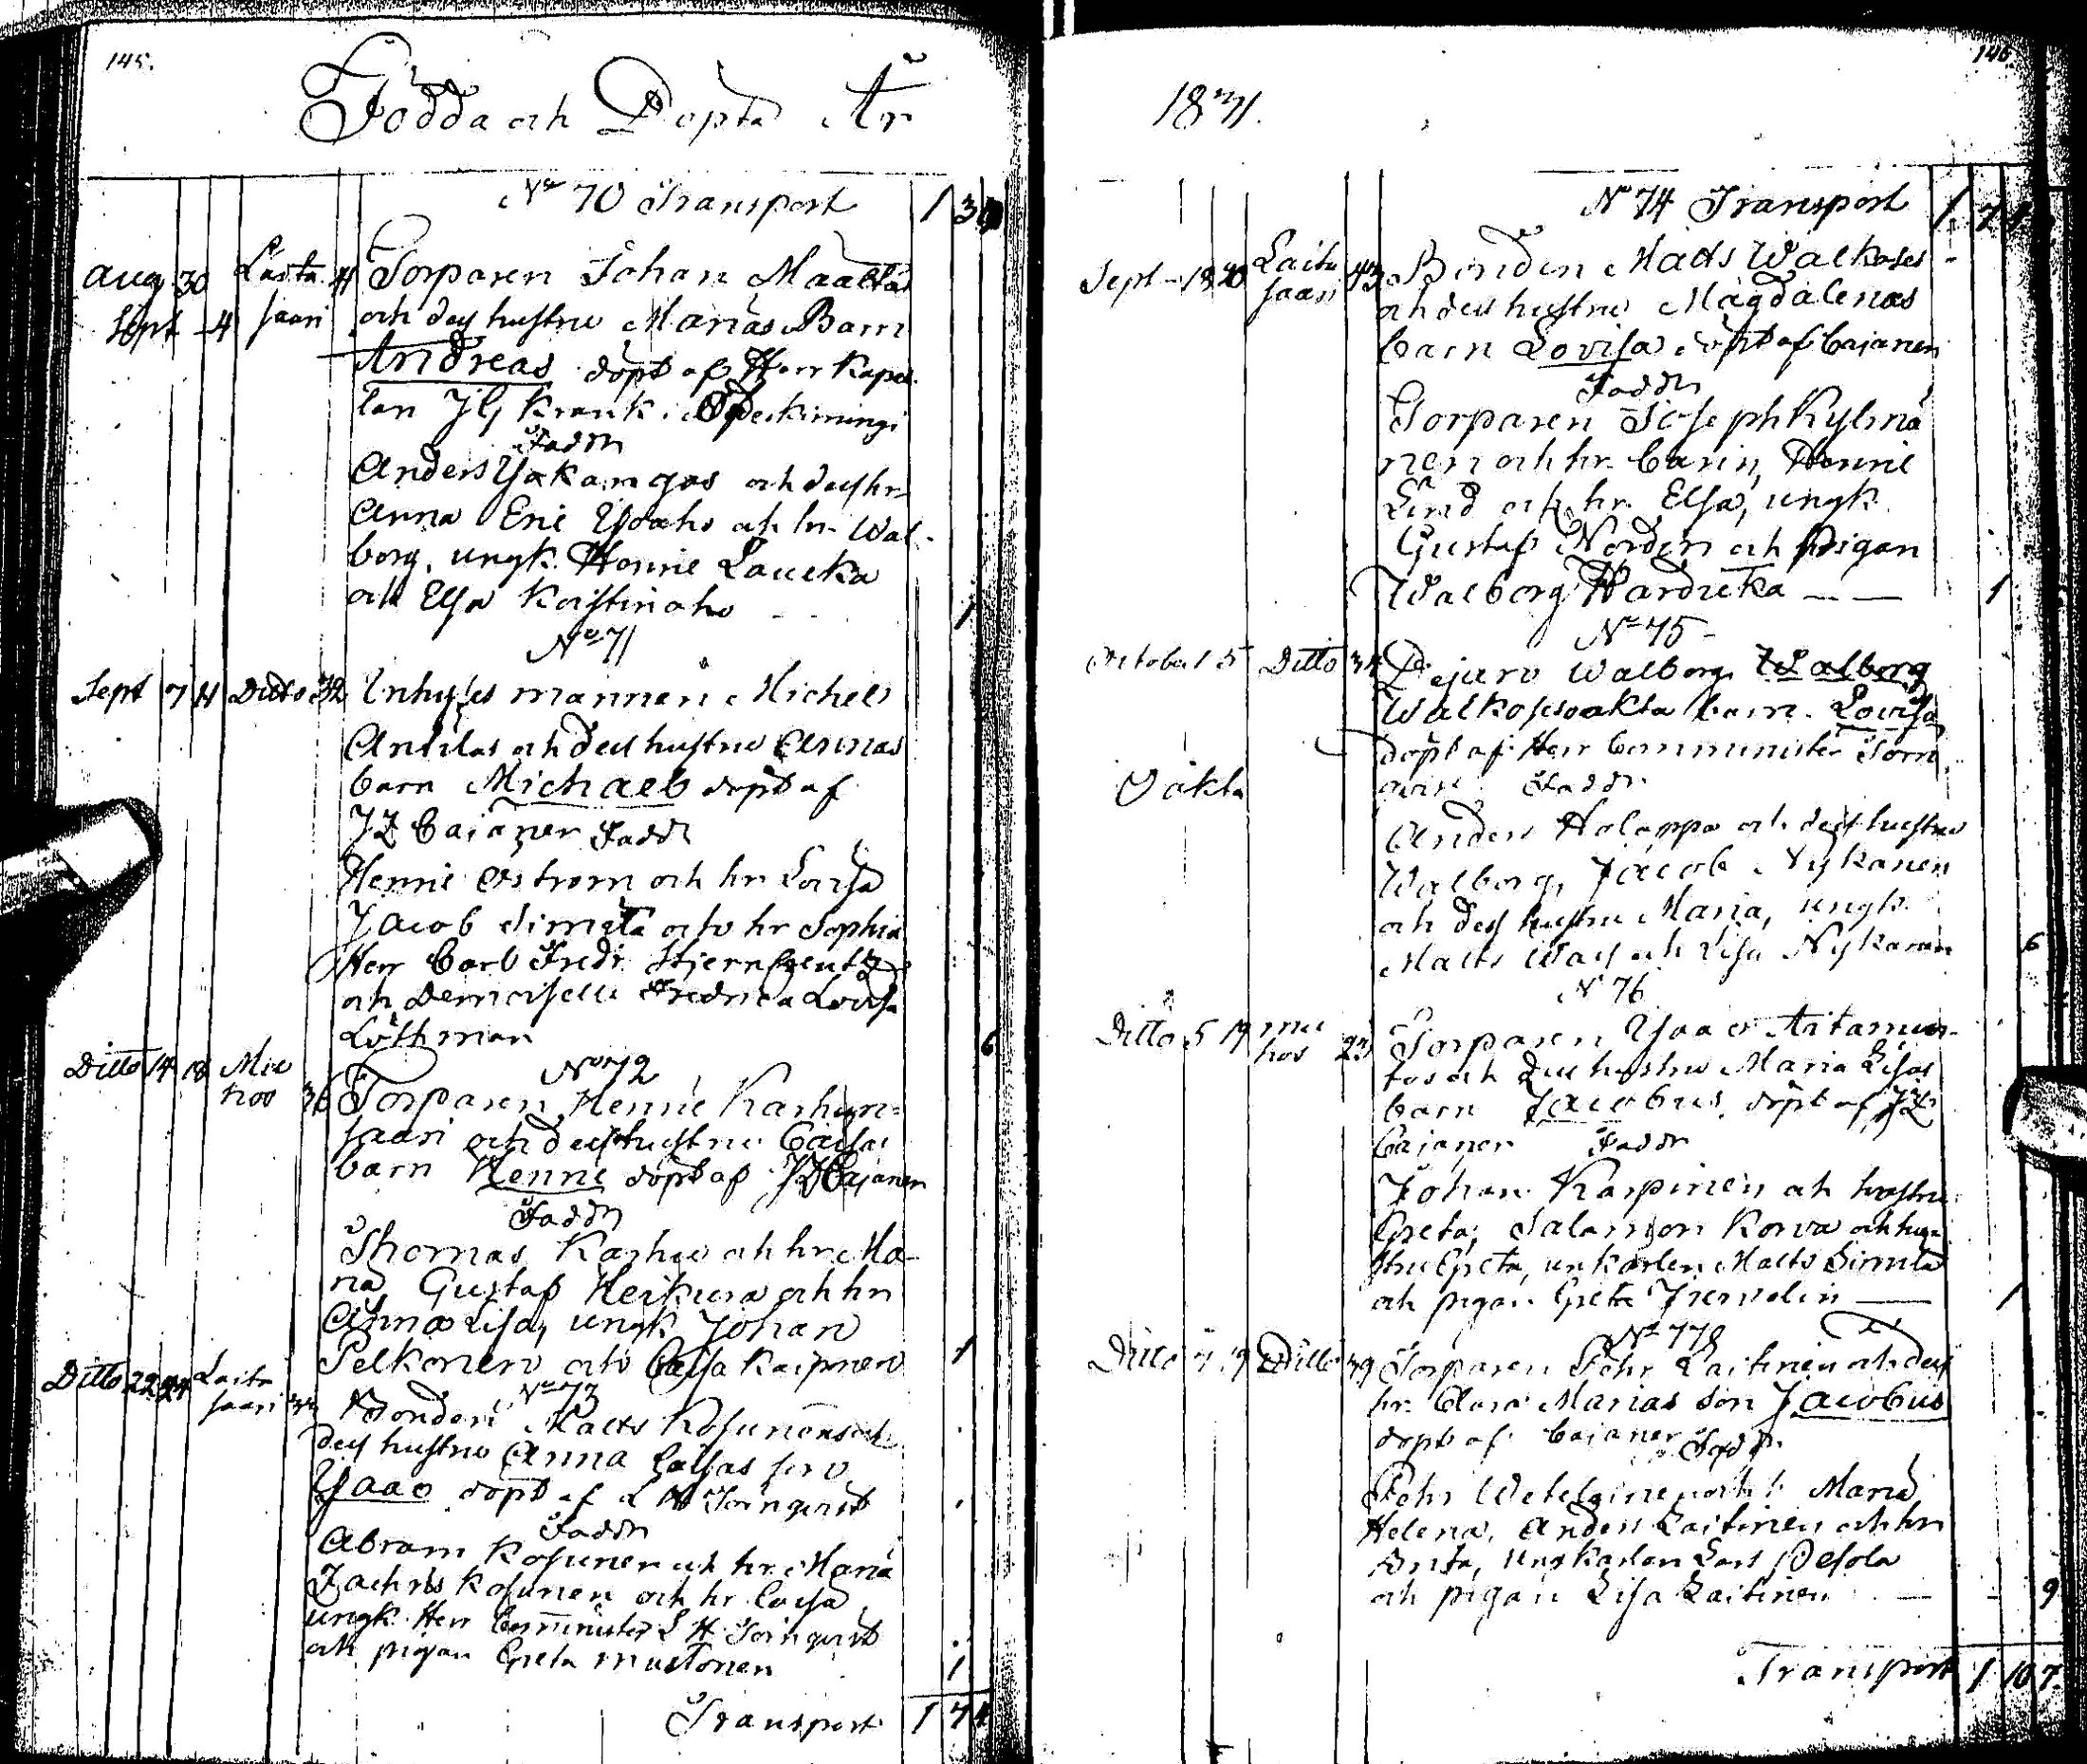 145.
Födda och Döpta År
No 70 Transport 1 3
Aug 30 Laita
Sept 4 saari
Torparen Johan Maalta
och dess hustru Marias Barn
Andreas döpt af Herr Kapel
lan Krank i
Faddr
Anders Yakamgas och dess hr
Anna Eric Ypaho och hr Wal-
borg, ungk. Henric Laucka
och Elsa Koistinaho 1
No 71
Sept 7 11 Ditto 32 Inhyses mannen Michel
Antilas och dess hustru Annas
barn Michael döpt af
JZ Cajaner Faddr
Henric Oström och hr Lovisa
Jacob Simita och hr Sophia
Herr Carl Fredr. Stjerncreutz
och Demoiselle Fredrica Lovisa
Löthman 6
No 72
Ditto 14 18 Mu
hos 36 Torparen Henric Karhun-
saari och dess hustru Caisas
barn Henric döpt af JZ Cajanen
Faddr
Thomas Karhu och hr Ma-
ria Gustaf Heikura och hr
Anna Lisa, ungk Johan
Pelkonen och Caisa Karpinen 1
No 73
Ditto 22 24 Laita
saari Bonden Matts Kosunens och
dess hustru Anna Caisas son
Ysaac döpt af L H Tornqvist
Faddr
Abram Kosunen och hr Maria
Zachris Kosunen och hr Caisa
ungk. Herr Comminister L H Törnqvist
och pigan Greta Mustonen 1
Transport 1 74
146
1831.
No 74 Transport 1 7
Sept 18 20 Laita
saari 43 Bonden Matts Walkoses
och dess hustru Magdalenas
barn Lovisa döpt af Cajanen
Faddr
Torparen Joseph Kylmä
nen och hr Carin, Henric
Lind och hr. Elsa, ungk.
Gustaf Norden och pigan
Walborg Hardicka 1
No 75
October 1 5 Ditto 34 Dejeren Walborg Walborg
Walkosesoakta barn Lovisa
döpt af Herr Comminister Törn
qvist Faddr
Oäkta
Anders Holappa och dess hustru
Walborg, Jacob Nykanen
och dess hustru Maria, ungk.
Matts Wass och Lisa Nykanen 6
No 76
Ditto 5 19 Mu
hos 23 Torparen Ysaac Aitamur-
tos och dess hustru Maria Lisas
barn Jacobus döpt af JZ
Cajaner Faddr
Johan Karpinen och hustru
Greta, Salamon Korva och hu
stru Greta, unkarlen Matts Simila
och pigan Greta 1
No 778
Ditto 7 19 Ditto 39 Torparen Pehr Laitinen och dess
hr. Clara Marias son Jacobus
döpt af Cajaner Faddr
Pehr och hr Maria
Helena, Anders Laitinen och hr
Anta, ungkarlen Lars Pesola
och pigan Lisa Laitinen 9
Transport 1 10 7.